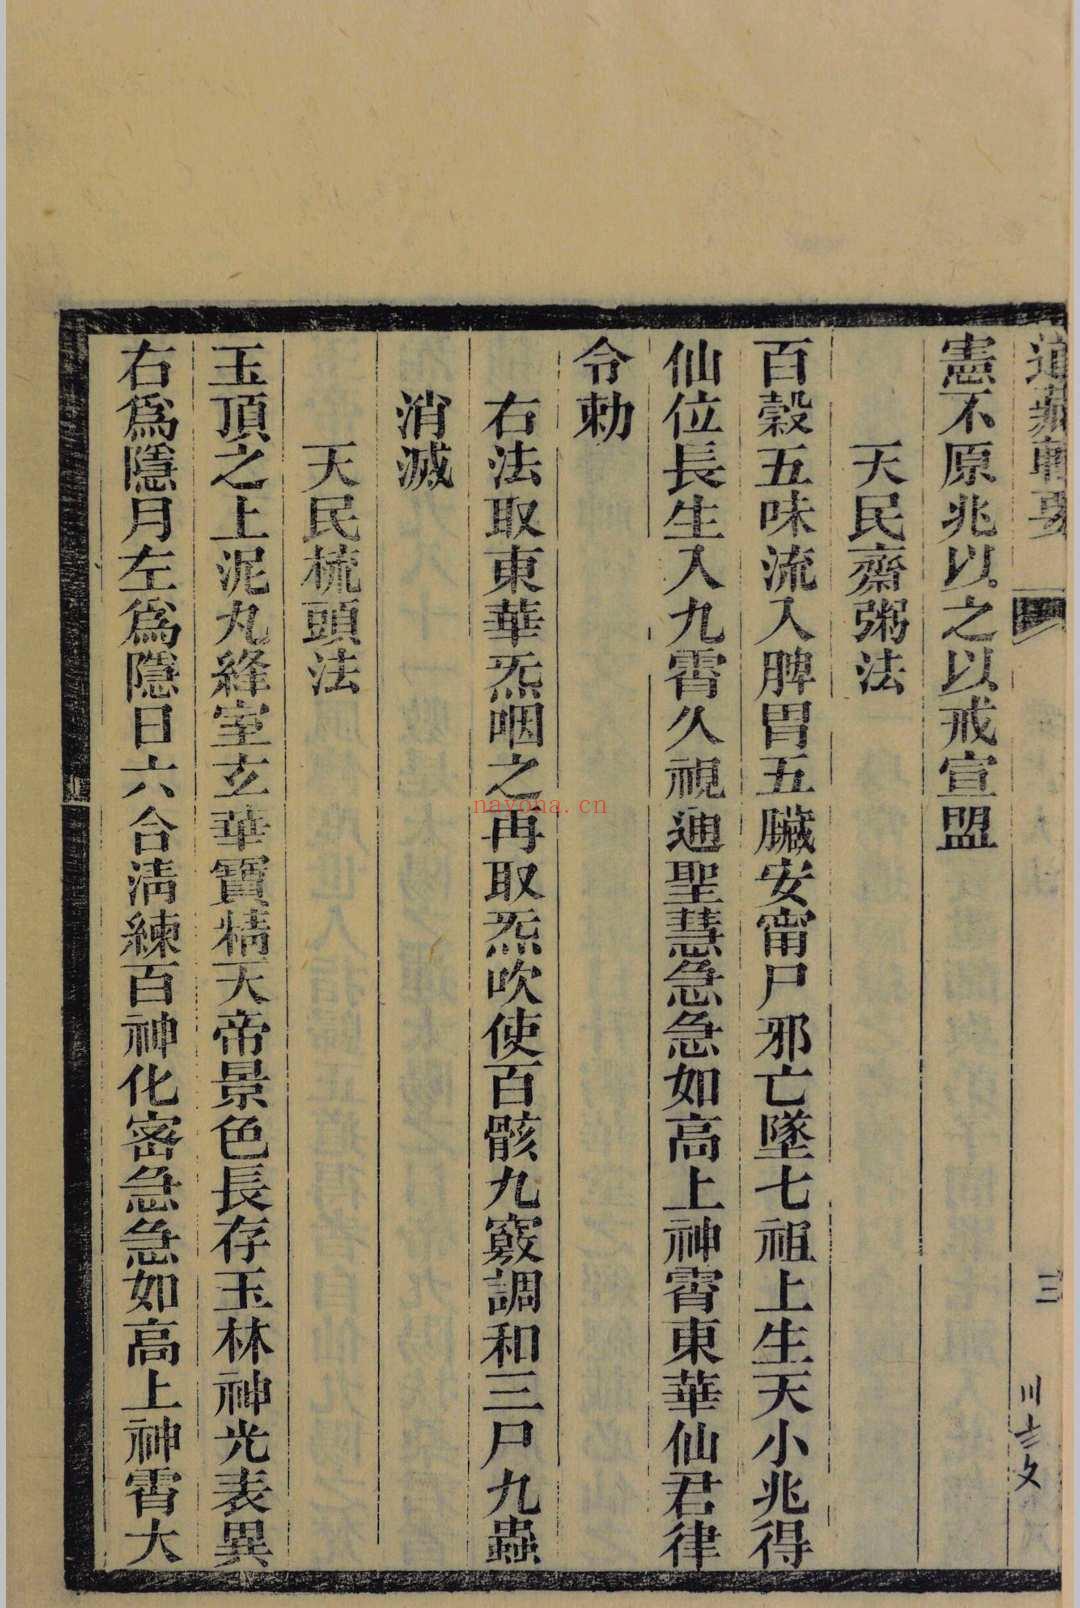 道藏輯要
三
憲不原兆以之以戒宣盟
天民齋粥法
百穀五味流入脾胃五臟安甯尸邪亡墜七祖上生天小兆得
仙位長生入九霄久視通聖慧急急如高上神霄東華仙君律
令勅
右法取東華炁咽之再取炁吹使百骸九竅調和三尸九蟲
消滅
天民梳頭法
玉頂之上泥丸絳室玄華寶精天帝景色長存玉林神光表異
右為隱月左為隱日六合淸練百神化密急急如高上神霄大
nayona.cn